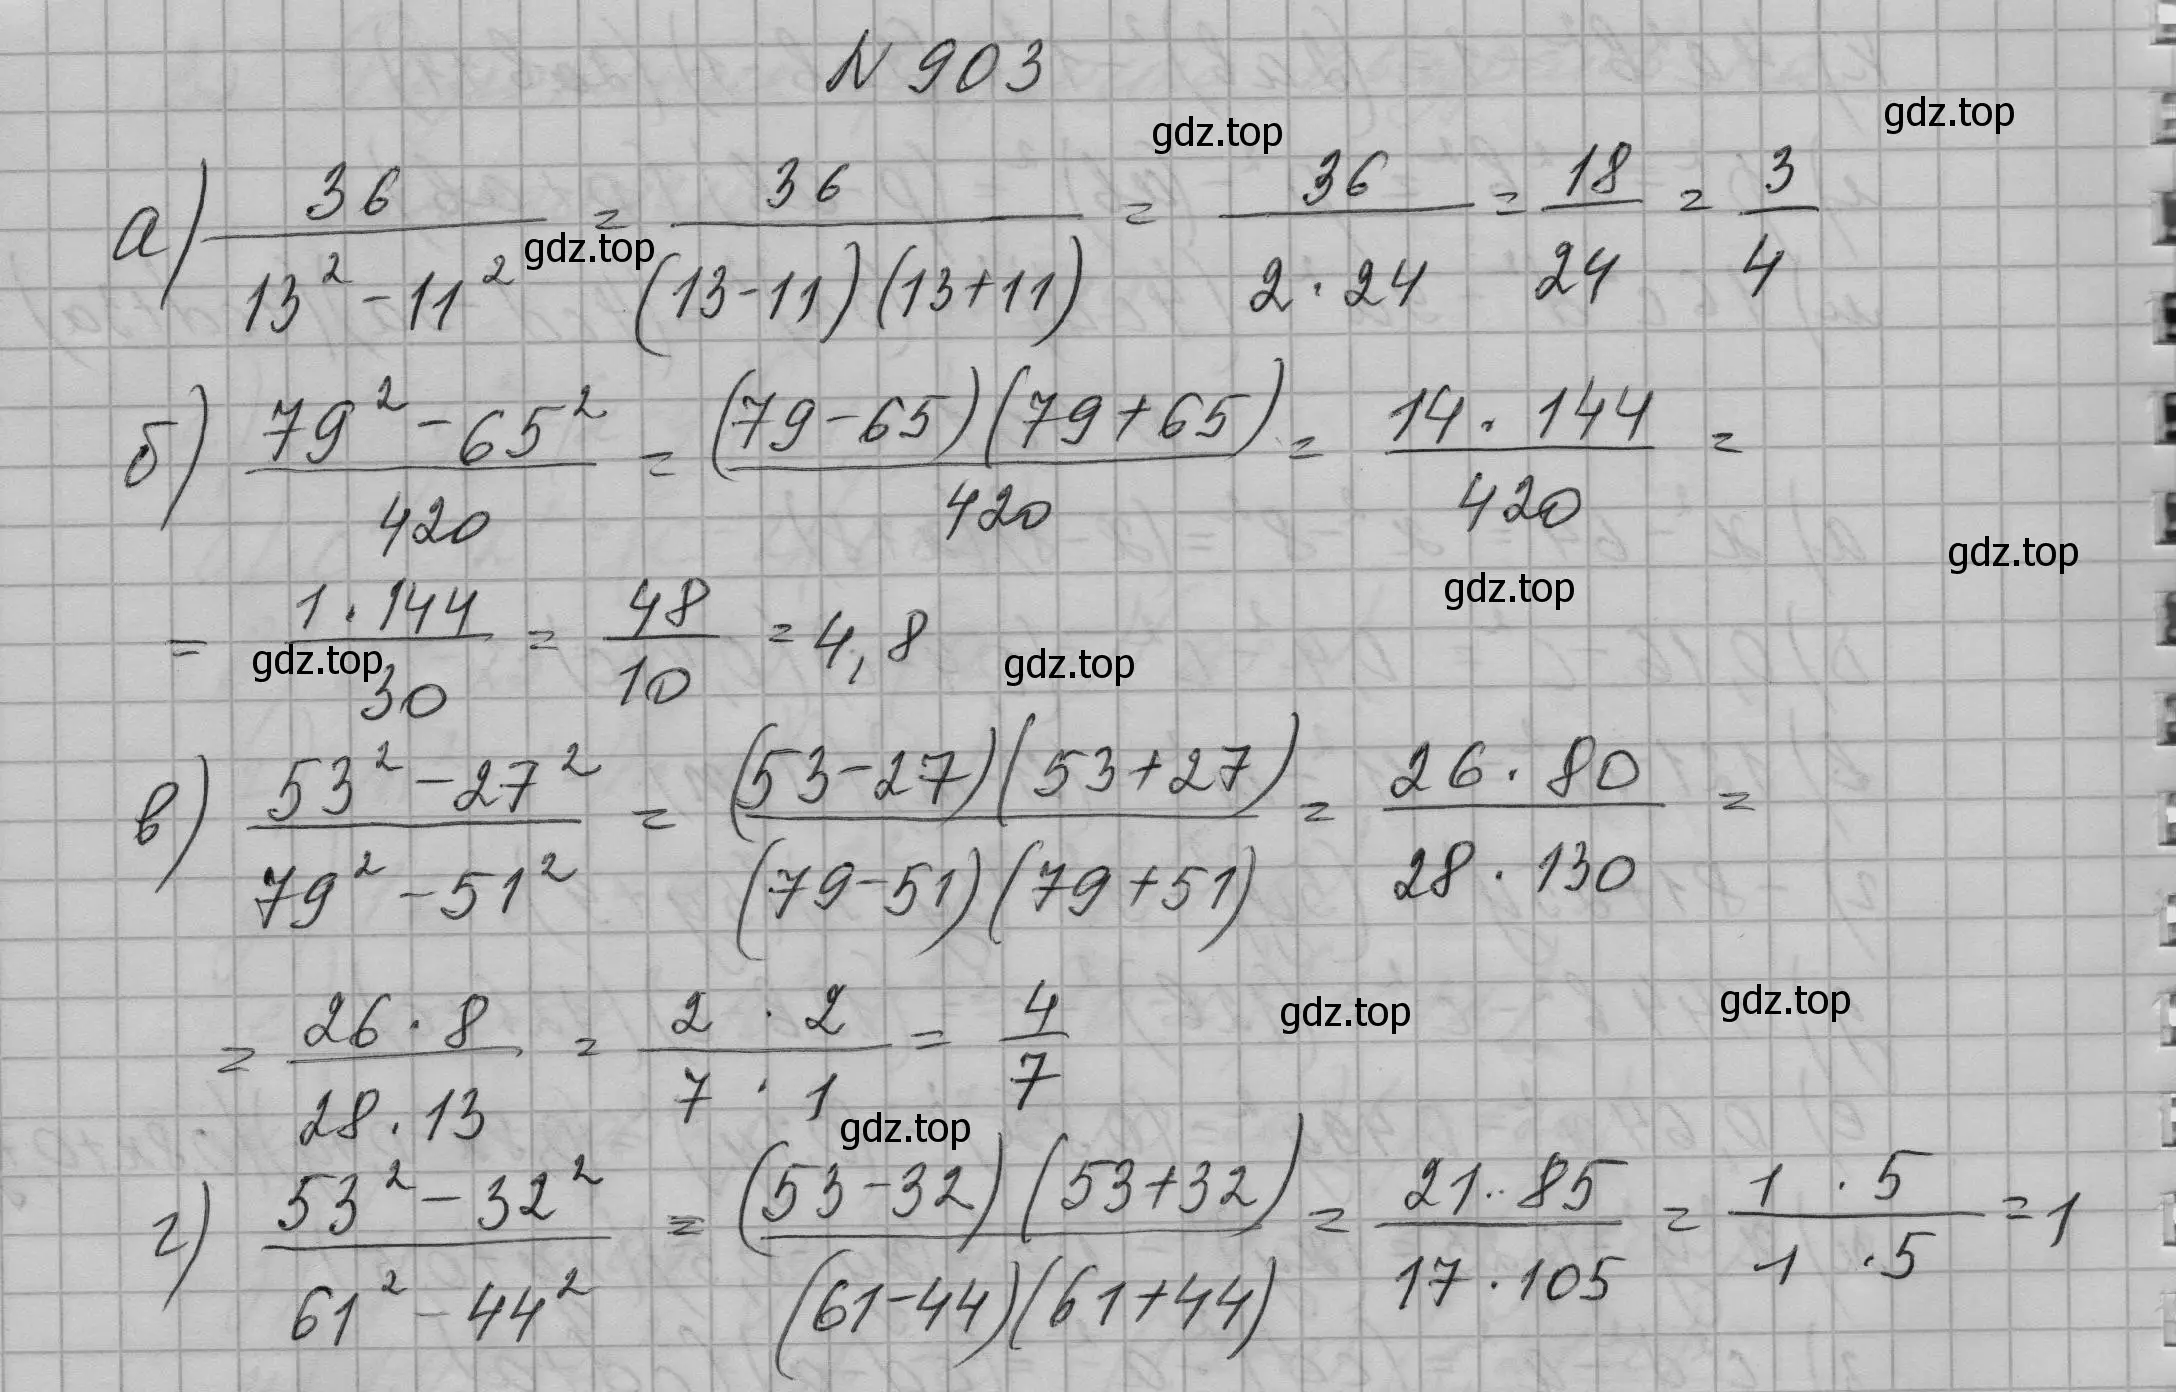 N 903
gdz.top
gdz.top
а) 36/(13² - 11²) = 36/((13-11)(13+11)) = 36/(2 · 24) = 18/24 = 3/4
gdz.top
б) (79² - 65²)/420 = ((79-65)(79+65))/420 = (14 · 144)/420 =
gdz.top
gdz.top
= (1 · 144)/30 = 48/10 = 4,8
gdz.top
gdz.top
в) (53² - 27²)/(79² - 51²) = ((53-27)(53+27))/((79-51)(79+51)) = (26 · 80)/(28 · 130) =
gdz.top
gdz.top
= (26 · 8)/(28 · 13) = (2 · 2)/(7 · 1) = 4/7
gdz.top
г) (53² - 32²)/(61² - 44²) = ((53-32)(53+32))/((61-44)(61+44)) = (21 · 85)/(17 · 105) = (1 · 5)/(1 · 5) = 1